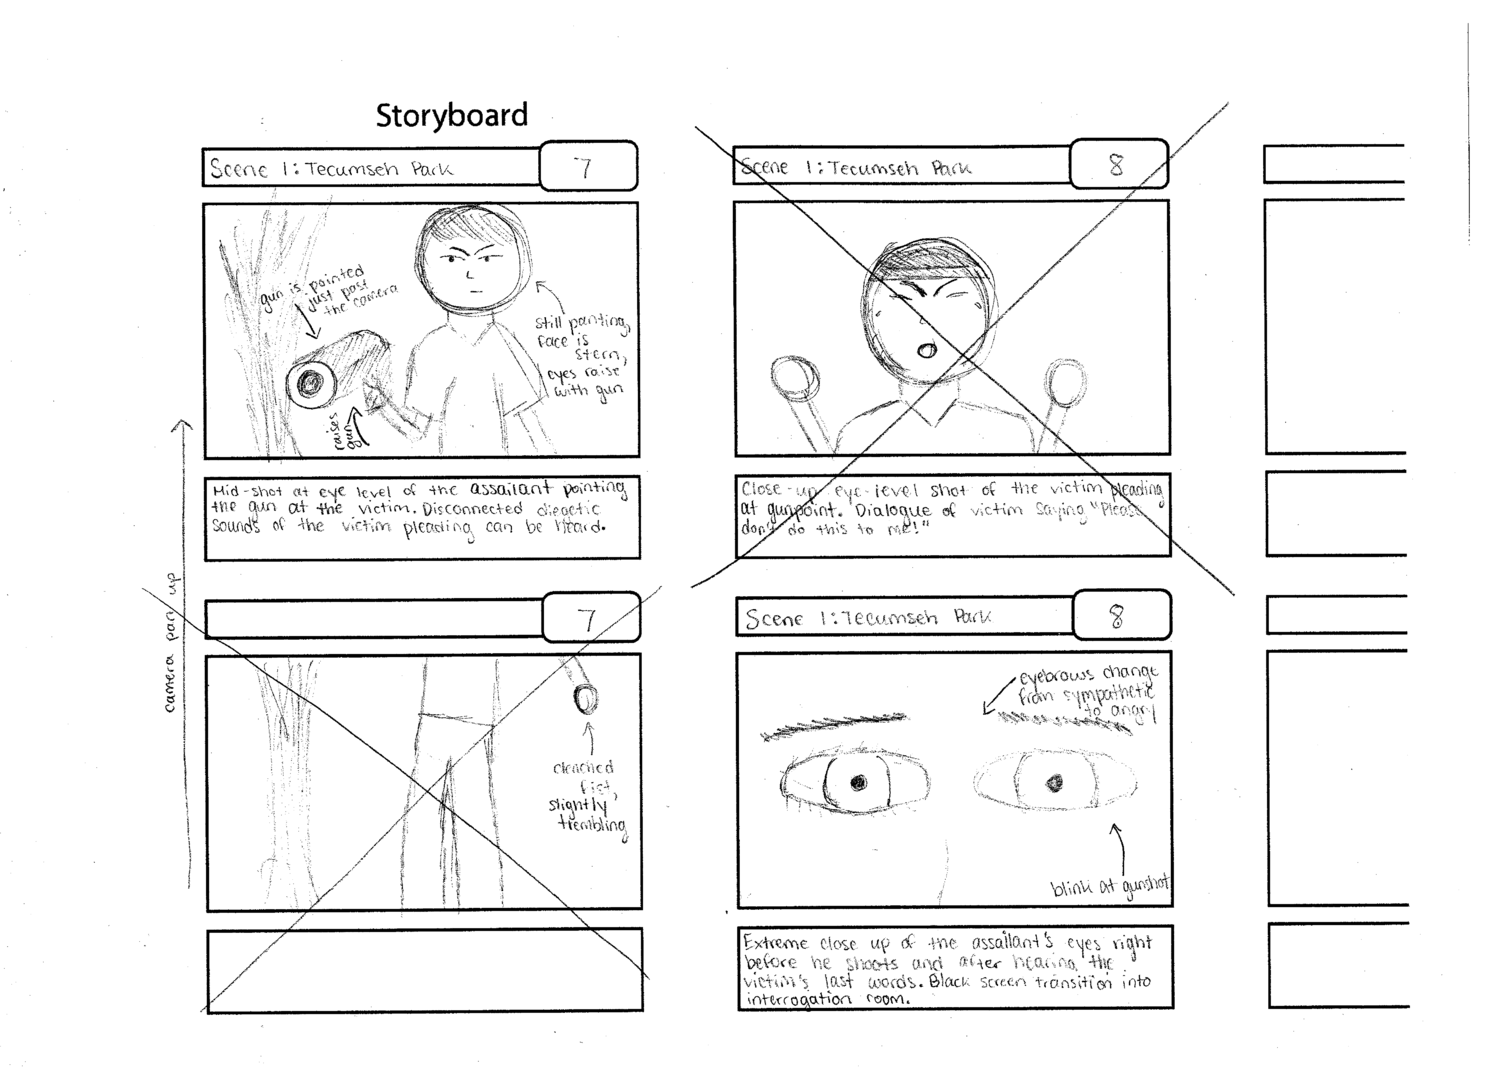 Storyboard
Scene 1: Tecumseh Park
7
gun is pointed
just past
the camera
still panting,
face is
stern,
eyes raise
with gun
raises
gun
Mid-shot at eye level of the assailant pointing
the gun at the victim. Disconnected diegetic
sounds of the victim pleading can be heard.
Scene 1: Tecumseh Park
8
Close-up eye-level shot of the victim pleading
at gunpoint. Dialogue of victim saying "Please
don't do this to me!"
camera pan up
7
clenched
fist,
slightly
trembling
Scene 1: Tecumseh Park
8
eyebrows change
from sympathetic
to angry
blink at gunshot
Extreme close up of the assailant's eyes right
before he shoots and after hearing the
victim's last words. Black screen transition into
interrogation room.